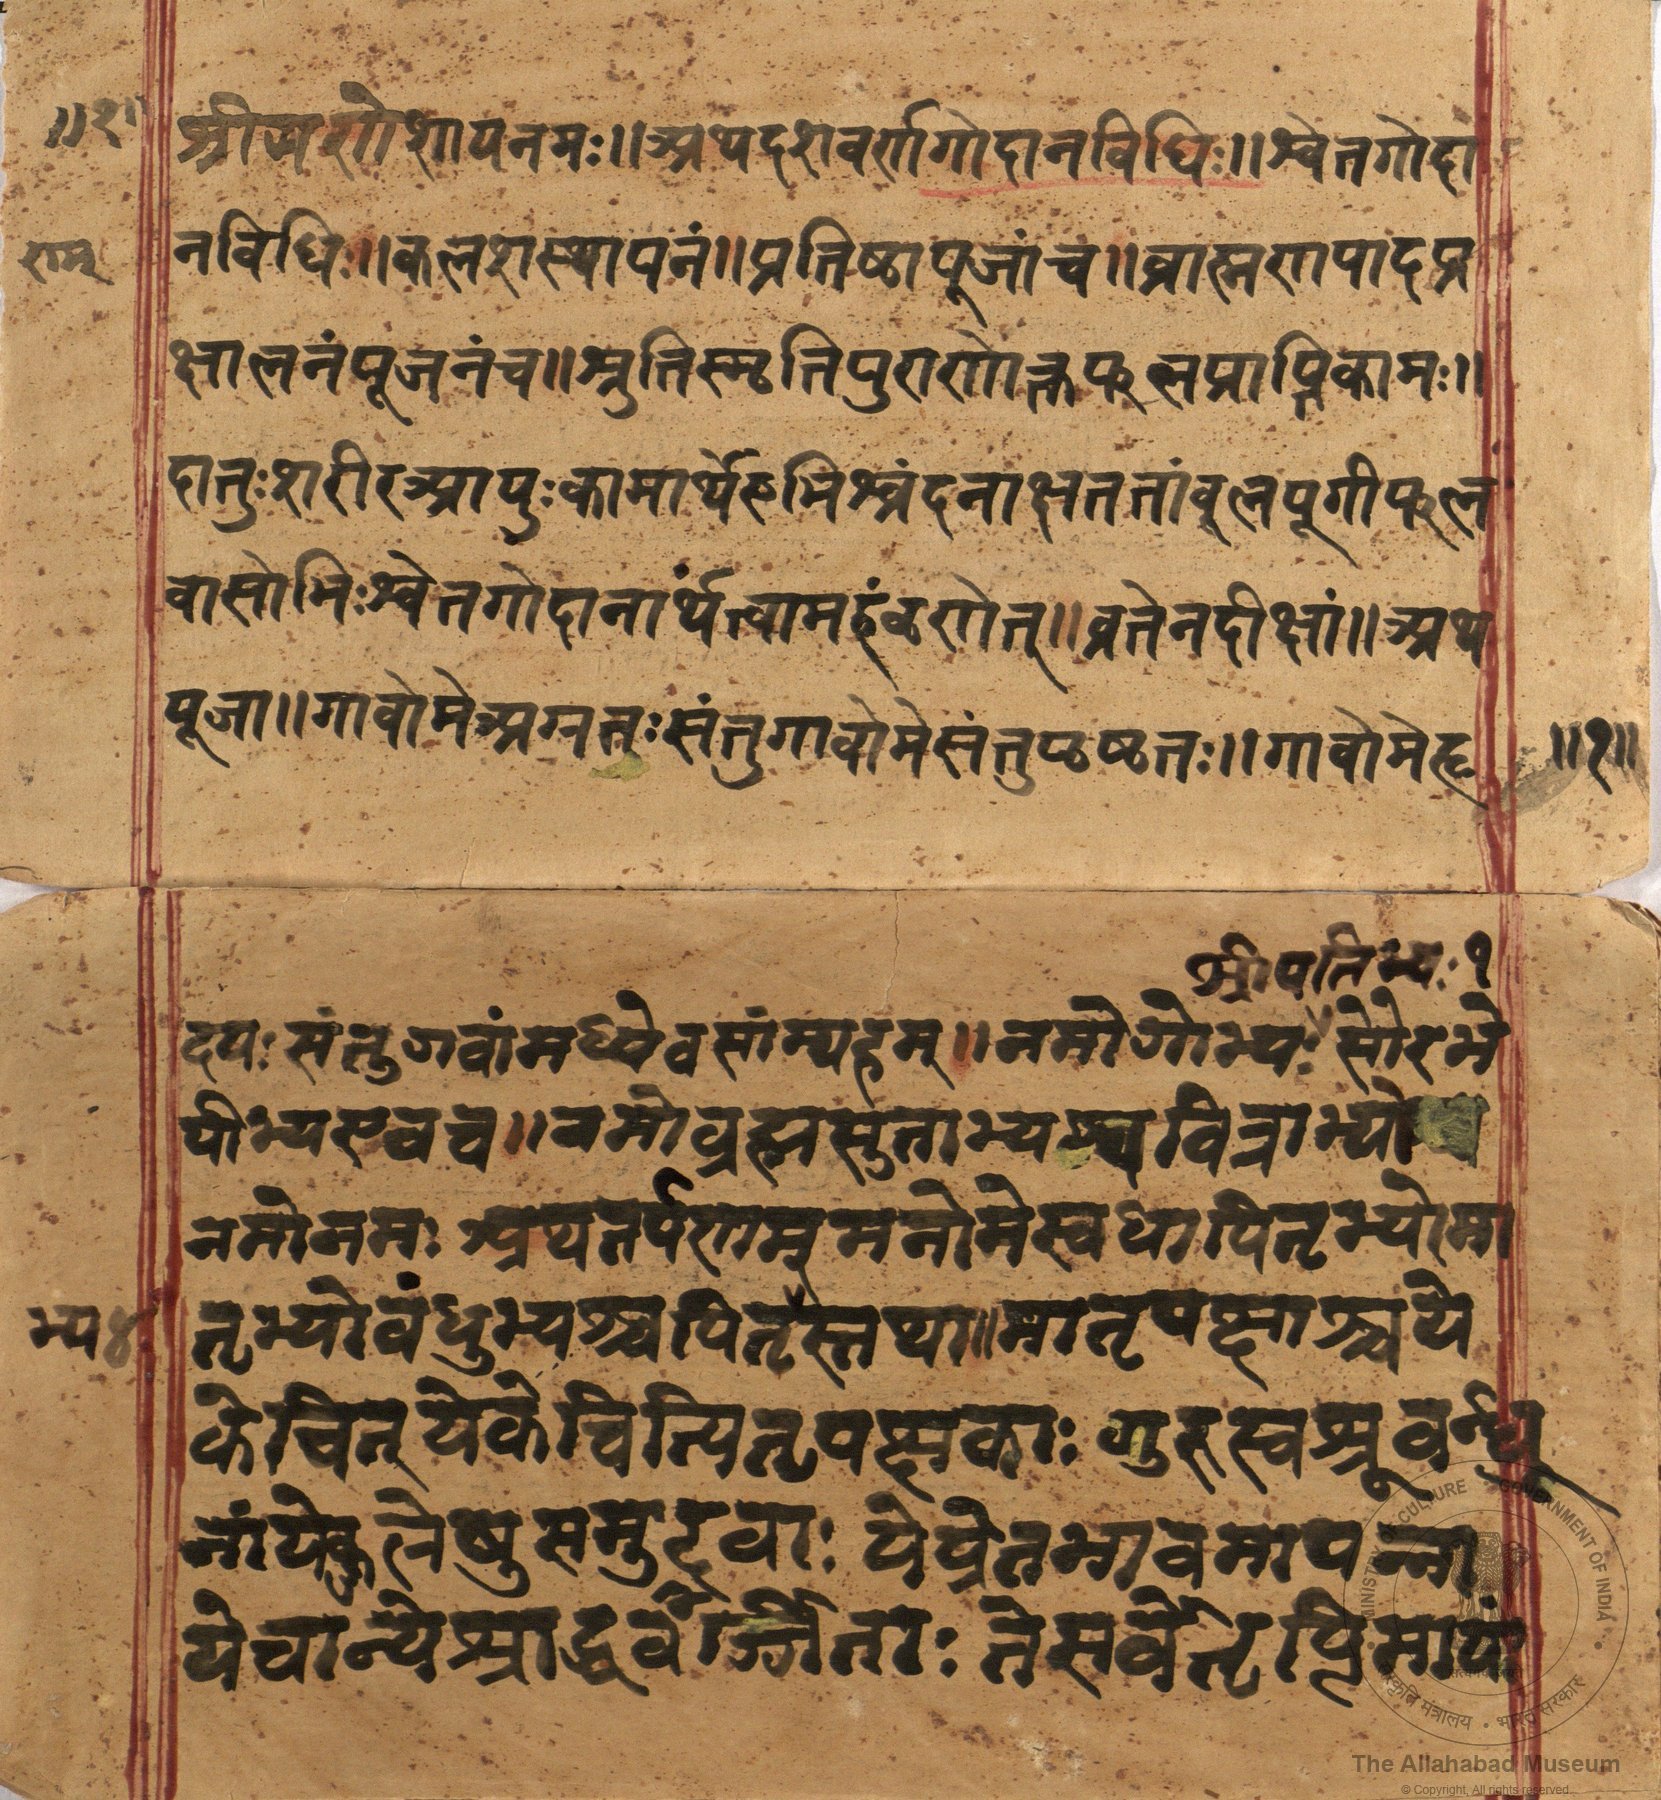 ॥१॥ श्रीगणेशायनमः॥अथदशवर्णगोदानविधिः॥श्वेतगोदा
राम् नविधिः॥कलशस्थापनं॥प्रतिष्ठापूजांच॥ब्राह्मणपादप्र
क्षालनंपूजनंच॥श्रुतिस्मृतिपुराणोक्तफलप्राप्तिकामः॥
दातुःशरीरआयुःकामार्थेरुभिश्चंदनाक्षततांवूलपूगीफल
वासोभिःश्वेतगोदानार्थंत्वामहंवृणेत्॥व्रतेनदीक्षां॥अथ
पूजा॥गावोमेअग्नतःसंतुगावोमेसंतुपृष्ठतः॥गावोमेहृ ॥१॥
श्रीपतिभ्यः१
दयःसंतुगवांमध्येवसांम्यहम्॥नमोगोभ्यःसौरभे
यीभ्यएवच॥नमोव्रह्मसुताभ्यश्चवित्राभ्यो
नमोनमः अथतर्पणम् मनोमेस्वधापितृभ्योमा
भ्य४ तृभ्योवंधुभ्यश्चपितृस्तथा॥मातृपक्षाश्चये
केचित्येकेचित्पितृपक्षकाः गुरुस्वश्रूवर्न्धू
नांयेकुलेषुसमुद्भवाः येप्रेतभावमापन्ना
येचान्येश्राद्धवर्जिताः तेसर्वेतृप्तिमायां
The Allahabad Museum
© Copyright, All rights reserved.
MINISTRY OF CULTURE GOVERNMENT OF INDIA
संस्कृति मंत्रालय • भारत सरकार
सत्यमेव जयते